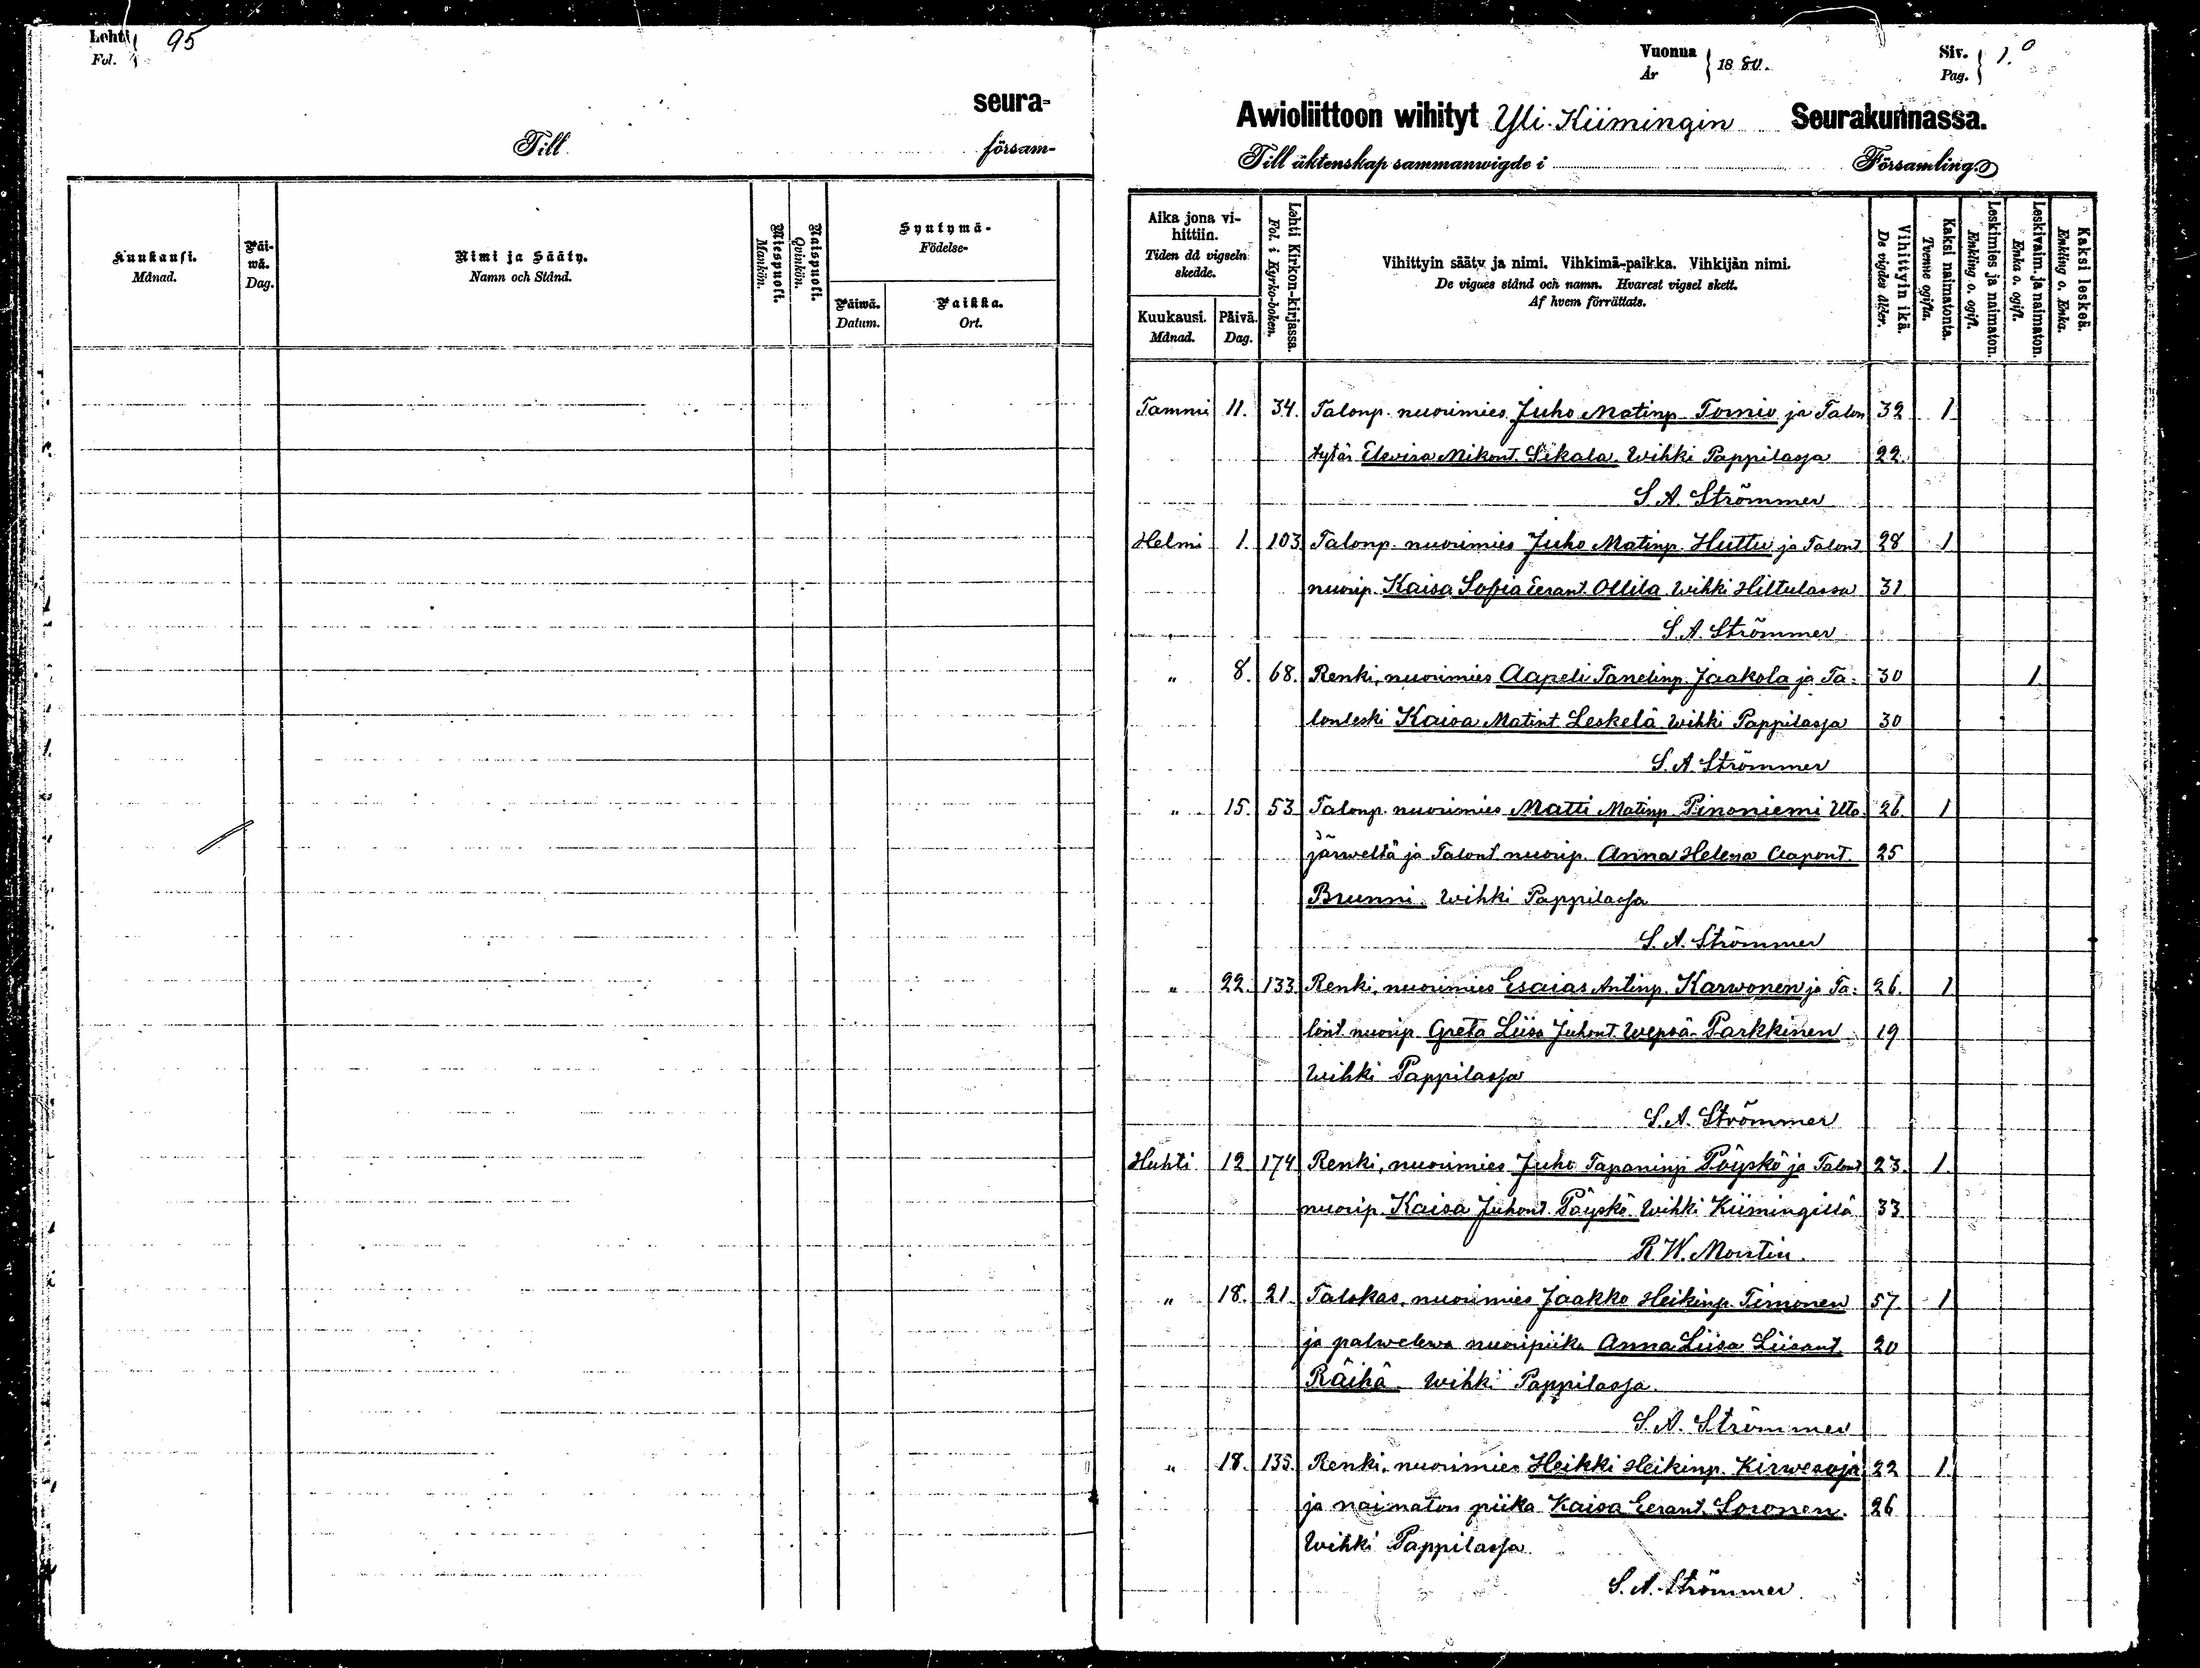 Lehti 95
Fol.
seura-
Till försam-
Kuukausi. Päi-wä. Nimi ja Sääty. Miespuoli. Naispuoli. Syntymä-
Månad. Dag. Namn och Stånd. Mankön. Qvinkön. Födelse-
Päiwä. Paikka.
Datum. Ort.
Vuonna 1880. Siv. 1.
År Pag.
Awioliittoon wihityt Yli-Kiimingin Seurakunnassa.
Till äktenskap sammanwigde i Församling.
Aika jona vi-hittiin. Tiden då vigseln skedde.
Kuukausi. Päivä.
Månad. Dag.
Lehti Kirkon-kirjassa. Fol. i Kyrko-boken.
Vihittyin sääty ja nimi. Vihkimä-paikka. Vihkijän nimi.
De vigdes stånd och namn. Hvarest vigsel skett.
Af hvem förrättats.
Vihittyin ikä. De vigdes ålder.
Kaksi naimatonta. Tvenne ogifta.
Leskimies ja naimaton. Enkling o. ogift.
Leskivaim. ja naimaton. Enka o. ogift.
Kaksi leskeä. Enkling o. Enka.
Tammi 11. 34. Talonp. nuorimies Juho Matinp. Tornio ja Talon 32 1
tytär Elewisa Mikont. Sikala. Wihki Pappilassa 22
S. A. Strömmer
Helmi 1. 103 Talonp. nuorimies Juho Matinp. Huttu ja Talont 28 1
nuorip. Kaisa Sofia Eerant. Ollila Wihki Hiltulassa 31
S. A. Strömmer
" 8. 68. Renki, nuorimies Aapeli Tanelinp. Jaakola ja Ta- 30 1
lonleski Kaisa Matint Leskelä Wihki Pappilassa 30
S. A. Strömmer
" 15. 53 Talonp. nuorimies Matti Matinp. Pinoniemi Uta- 26. 1
järweltä ja Talont nuorip. Anna Helena Aapont. 25
Brunni. Wihki Pappilassa
S. A. Strömmer
" 22. 133. Renki, nuorimies Esaias Antinp. Karwonen ja Ta- 26. 1
lont nuorip. Greta Liisa Juhont. Wepsä-Parkkinen 19
Wihki Pappilassa
S. A. Strömmer
Huhti 12 174 Renki, nuorimies Juho Tapaninp. Pöyskö ja Talont 23. 1.
nuorip. Kaisa Juhont. Pöyskö Wihki Kiimingillä 33
R. W.
" 18. 21. Talokas, nuorimies Jaakko Heikinp. Timonen 57 1
ja palwelewa nuoripiika Anna Liisa Liisant. 20
Räihä Wihki Pappilassa.
S. A. Strömmer
" 18. 135. Renki, nuorimies Heikki Heikinp. Kirwesoja 22 1
ja naimaton piika Kaisa Eerant. Soronen. 26
Wihki Pappilassa
S. A. Strömmer